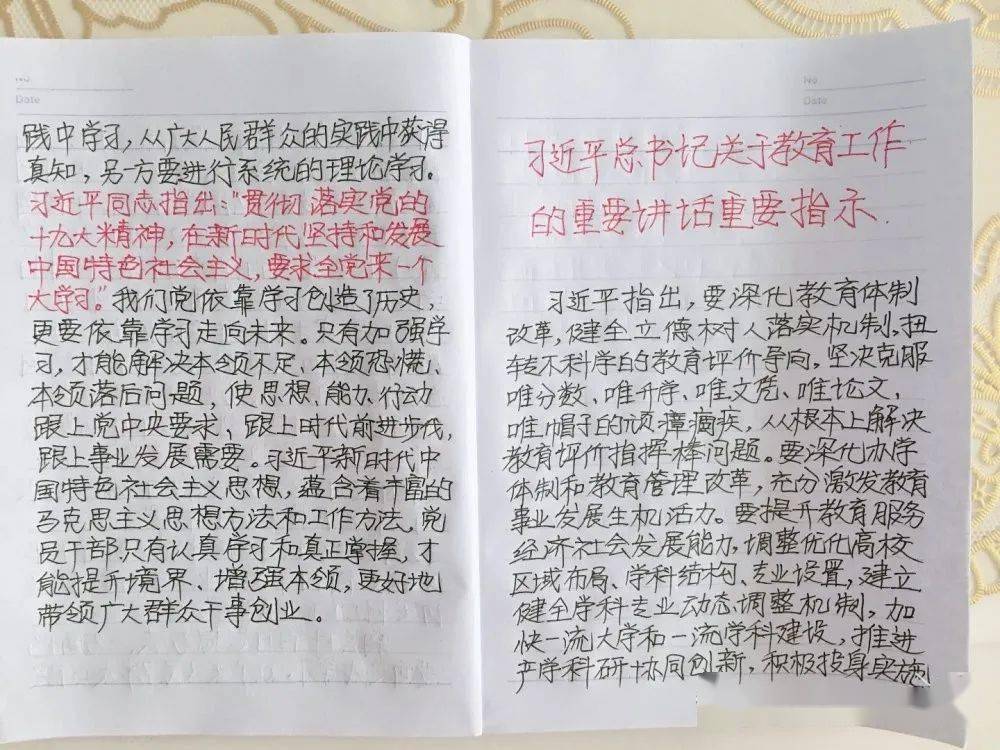 No.
Date
践中学习，从广大人民群众的实践中获得
真知，另方要进行系统的理论学习。
习近平同志指出："贯彻落实党的
十九大精神，在新时代坚持和发展
中国特色社会主义，要求全党来一个
大学习。"我们党依靠学习创造了历史，
更要依靠学习走向未来。只有加强学
习，才能解决本领不足、本领恐慌、
本领落后问题，使思想、能力、行动
跟上党中央要求、跟上时代前进步伐，
跟上事业发展需要。习近平新时代中
国特色社会主义思想，蕴含着丰富的
马克思主义思想方法和工作方法。党
员干部只有认真学习和真正掌握，才
能提升境界、增强本领，更好地
带领广大群众干事创业。
No
Date
习近平总书记关于教育工作
的重要讲话重要指示.
习近平指出，要深化教育体制
改革，健全立德树人落实机制，扭
转不科学的教育评价导向，坚决克服
唯分数、唯升学、唯文凭、唯论文，
唯帽子的顽瘴痼疾，从根本上解决
教育评价指挥棒问题。要深化办学
体制和教育管理改革，充分激发教育
事业发展生机活力。要提升教育服务
经济社会发展能力，调整优化高校
区域布局、学科结构、专业设置，建立
健全学科专业动态调整机制，加
快一流大学和一流学科建设，推进
产学科研协同创新，积极投身实施